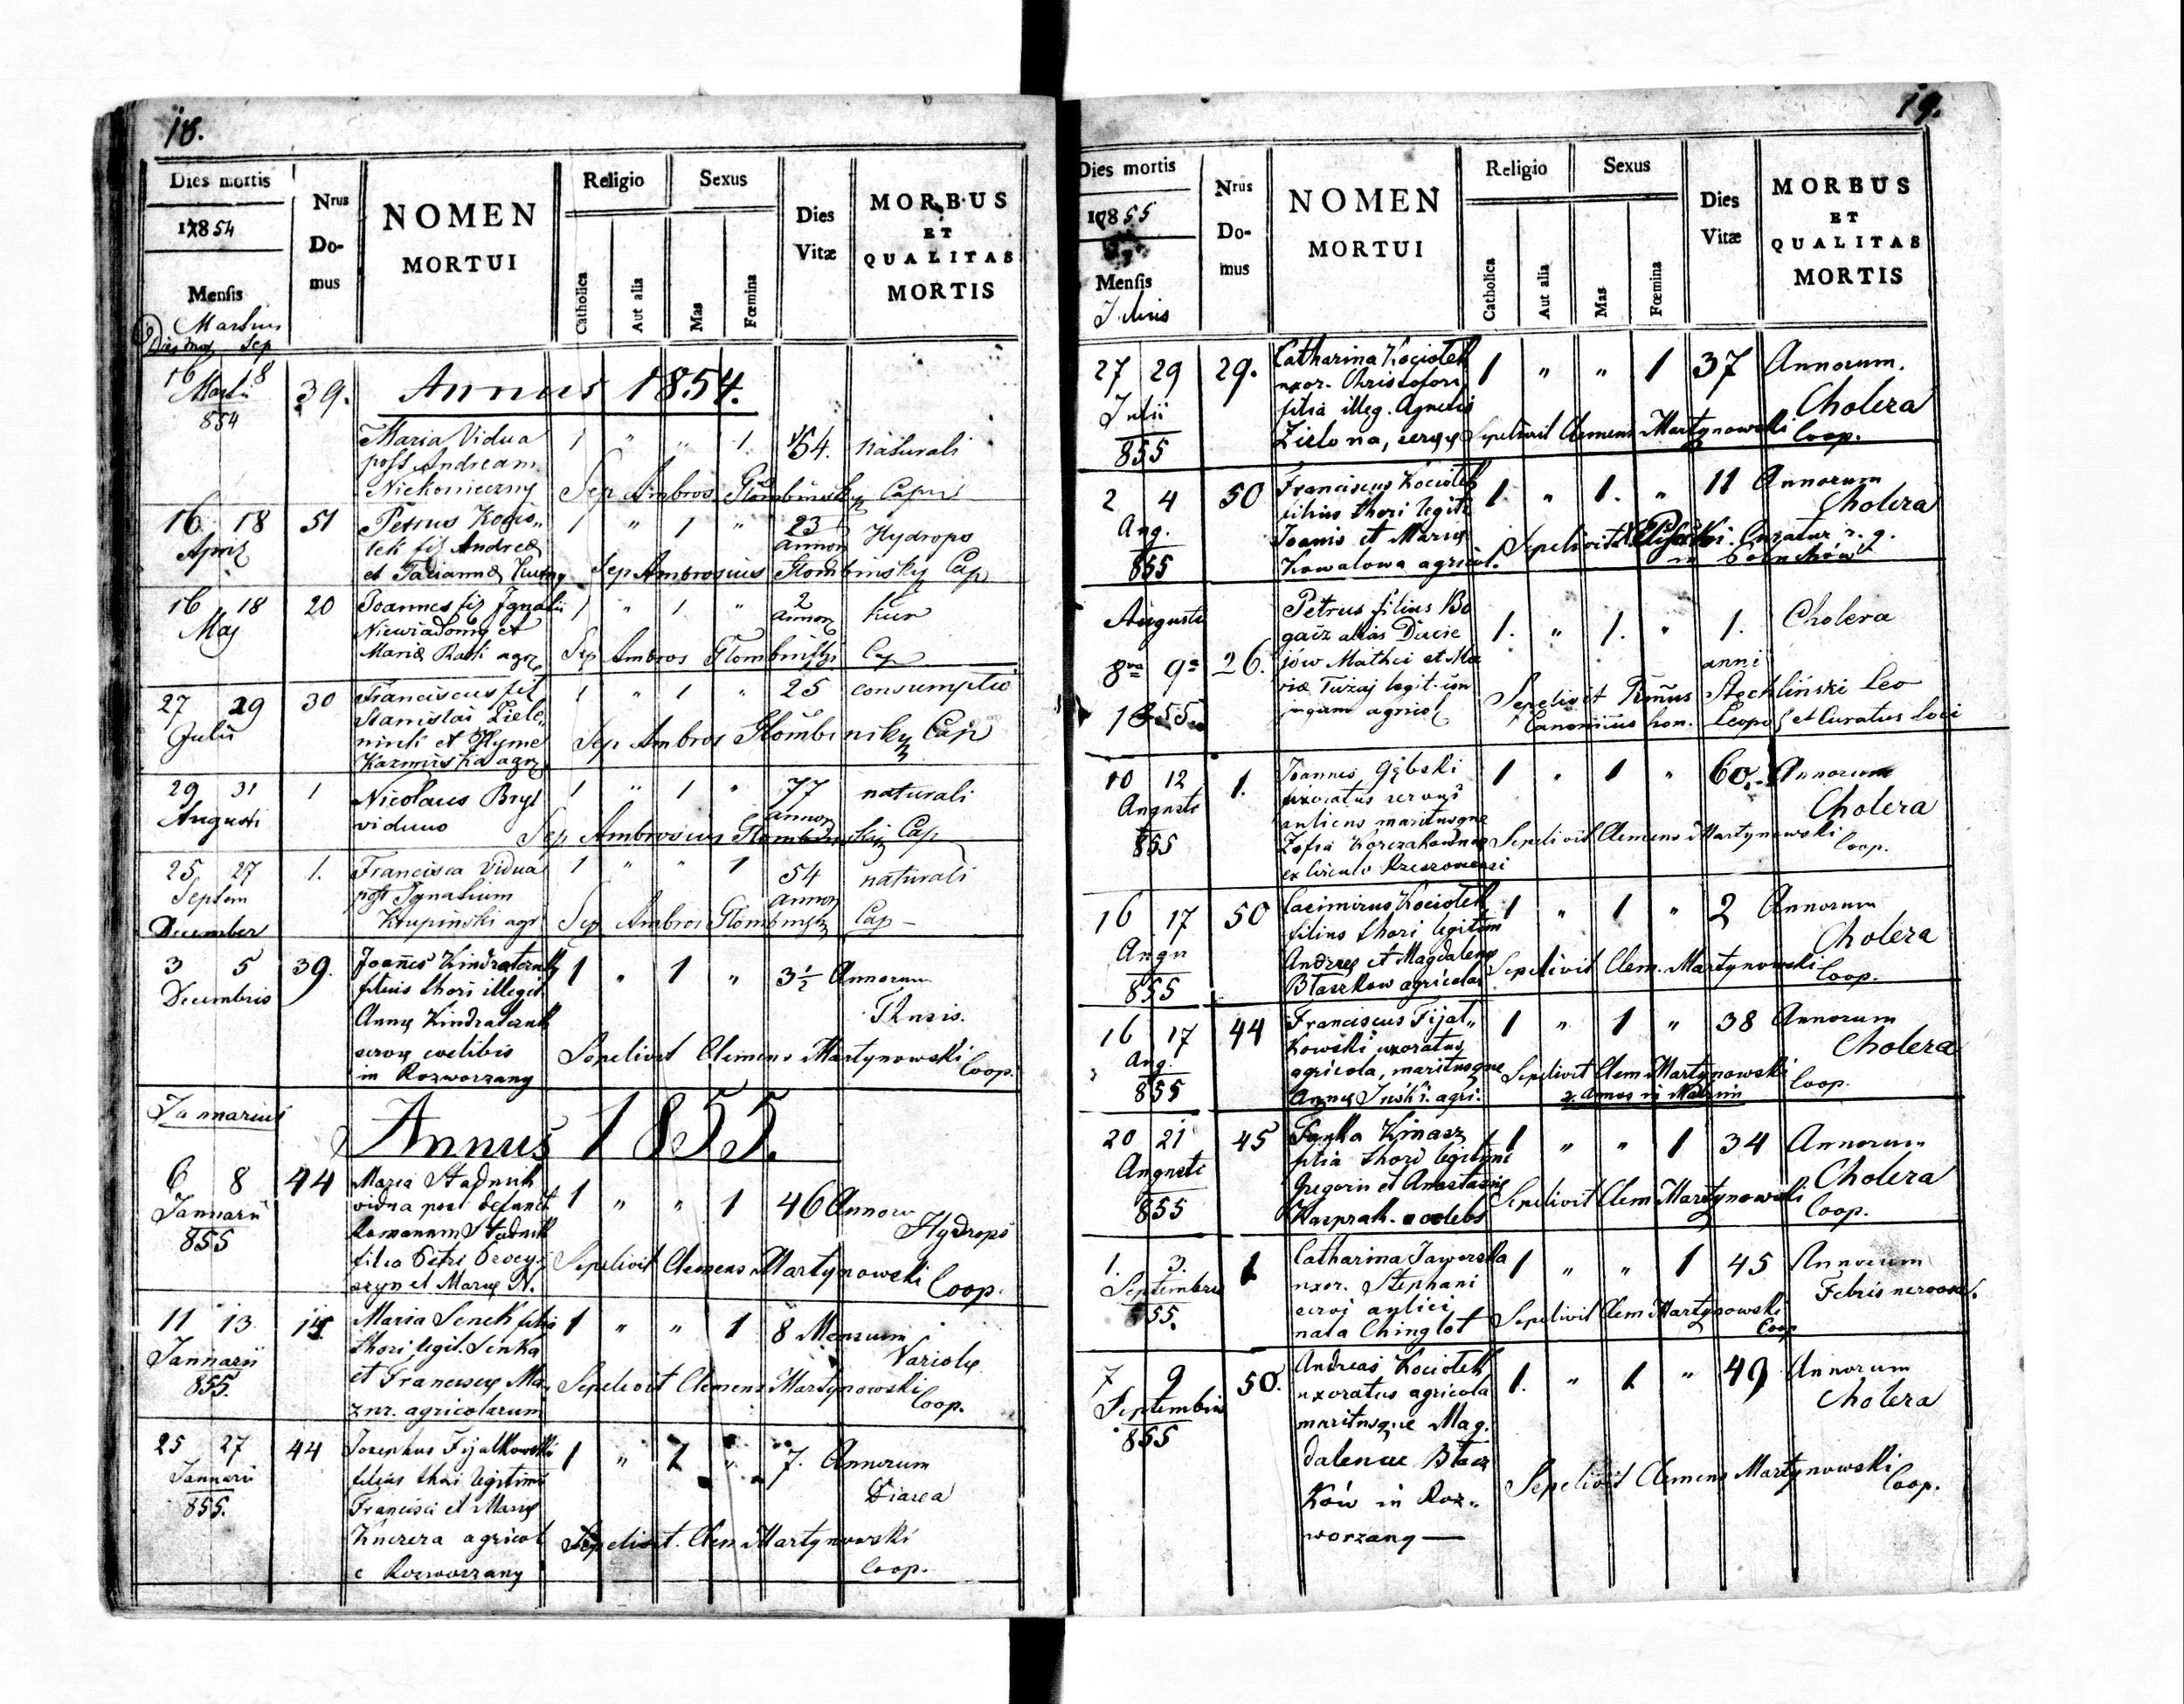 18.
Dies mortis
Nrus Domus
NOMEN MORTUI
Religio
Sexus
Dies Vitæ
MORBUS ET QUALITAS MORTIS
1854
Mensis
Catholica
Aut alia
Mas
Fœmina
Martius
Dies Sep
16 18 39. Annus 1854.
Martii
854
Maria Vidua 1 " " 1. 54. naturali
post Andream
Niekonieczny Sep Ambros Glombinsky Cap
16 18 51 Petrus Kocio„ 1 " 1 " 23 Hydrops
April tek fil Andreæ annor
et Sep Ambrosius Glombinsky Cap
16 18 20 Joannes fil Ignatii 1 " 1. " 2
Maj Niewiadomy et annor
Mariæ agr Sep Ambros Glombinski Cap
27 29 30 Franciscus fil 1 " 1 " 25 consumptio
Julii Stanislai Ziele„
et Sep Ambros Glombinsky Cap
Kazmirska agr
29 31 1 Nicolaus Bryl 1 " 1 " 77 naturali
Augusti viduus annor
Sep Ambrosius Cap
25 27 1. Francisca Vidua 1 " " 1 54 naturali
Septem post Ignatium annor
Krupinski agr Sep Ambros Glombinsky Cap
December
3 5 39. Joañes 1 " 1 " 3½ Annorum
Decembris filius thori illegit. Thusis.
Annæ
servæ coelibis Sepelivit Clemens Martynowski
in Rozworzany Coop.
Januarius
Annus 1855.
6 8 44 Maria Stadnik 1 " " 1 46 Annor
Januarii vidua post defunct Hydrops
855 Romanum Stadnik
filia Petri Sepelivit Clemens Martynowski
et Mariæ N. Coop.
11 13 14 Maria Senek filia 1 " " 1 8 Mensium
Januarii thori legit. Senka Variolæ
855. et Franciscæ Ma„ Sepelivit Clemens Martynowski
zur. agricolarum Coop.
25 27 44 Josephus Fijalkowski 1 " 1 " 7. Annorum
Januarii filius thori legitimi Diarea
855. Francisci et Mariæ
agricol Sepelivit. Clem Martynowski
e Rozworzany Coop.
19.
Dies mortis
Nrus Domus
NOMEN MORTUI
Religio
Sexus
Dies Vitæ
MORBUS ET QUALITAS MORTIS
1855
Mensis
Catholica
Aut alia
Mas
Fœmina
Julius
27 29 29. Catharina Kociołek 1 " " 1 37 Annorum.
Julii uxor. Christofori Cholera
855 filia illeg. Agnetis
Zielona, servæ Sepelivit Clemens Martynowski Coop.
2 4 50 Franciscus Kociołek 1. " 1. " 11 Annorum
Aug. filius thori legiti Cholera
855 Joanis et Mariæ Sepelivit Curatus r. g.
Kowalowa agricol. in
Augusti Petrus filius Bo
gacz alias Ducie 1. " 1. " 1. Cholera
8va 9a 26. jów Mathei et Ma anni
riæ Tuzaj legit. con Sepelivit Stechliński Leo
1855 jugum agricol Canonicus hon. Leopol et Curatus loci
10 12 1. Joannes Gębski 1 " 1 " 60. Annorum
Augusti uxoratus servus Cholera
855 aulicus maritusque
Zofia Sepelivit Clemens Martynowski
ex Circulo Rzeszowensi Coop.
16 17 50 Casimirus Kociołek 1 " 1 " 2 Annorum
Augu filius thori legitim Cholera
855 Andreæ et Magdalenæ Sepelivit Clem. Martynowski
Błaszkow agricolar Coop.
16 17 44 Franciscus Fijał„ 1 " 1 " 38 Annorum
Aug. kowski uxoratus Cholera
855 agricola, maritusque Sepelivit Clem Martynowski
Annæ agri. Coop.
20 21 45 Fenka Kinasz 1 " " 1 34 Annorum
Augusti filia thori legitimi Cholera
855 Gregorii et Anastasiæ Sepelivit Clem Martynowski
Kasprak. coelebs Coop.
1. 3. 1 Catharina Jaworska 1 " " 1 45 Annorum
Septembris uxor. Stephani Febris nervosa.
855. servi aulici Sepelivit Clem Martynowski
nata Chinglot Coop
7 9 50. Andreas Kociołek 1. " 1 " 49 Annorum
Septembris uxoratus agricola Cholera
855 maritusque Mag.
dalenae Błasz Sepelivit Clemens Martynowski
ków in Roz„ Coop.
worzany —